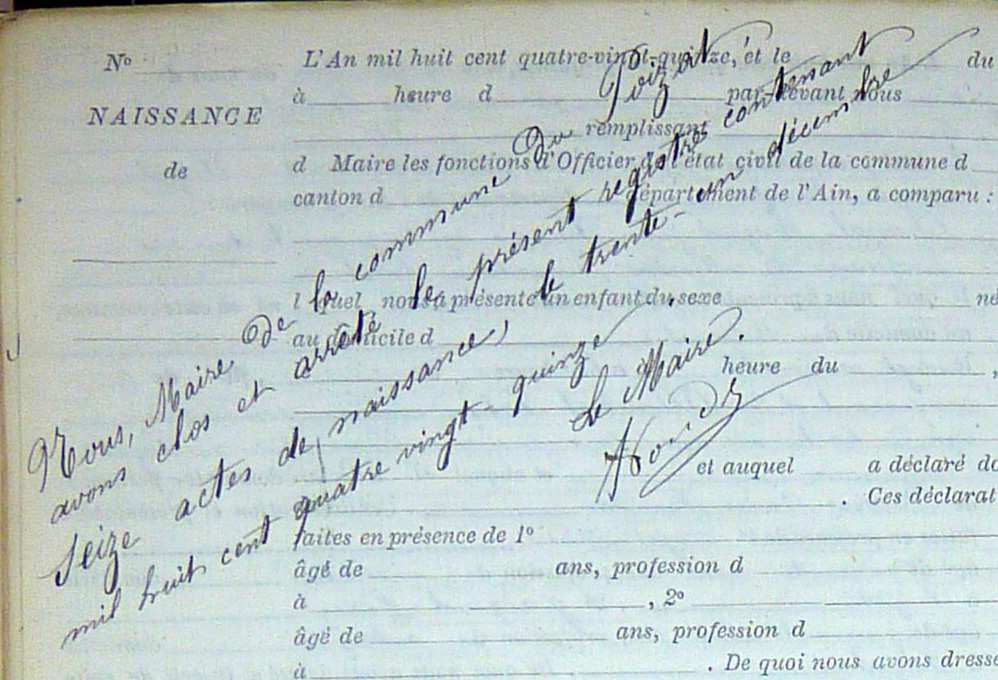 N°
NAISSANCE
de
L'An mil huit cent quatre-vingt-quinze, et le du
à heure d par-devant nous
remplissant
d Maire les fonctions d'Officier de l'état civil de la commune d
canton d département de l'Ain, a comparu :
l quel nous a présenté un enfant du sexe né
au domicile d
heure du ,
et auquel a déclaré do
. Ces déclarat
faites en présence de 1°
âgé de ans, profession d
à , 2°
âgé de ans, profession d
à . De quoi nous avons dressé
Nous, Maire de la commune du Poizat
avons clos et arrêté le présent registre contenant
Seize actes de naissance, le trente-un décembre
mil huit cent quatre vingt-quinze.
Le Maire.